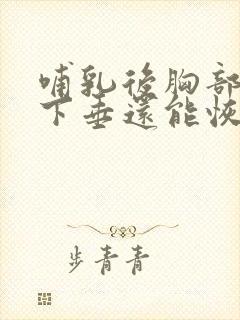 哺乳後胸部
下垂還能恢
步青青